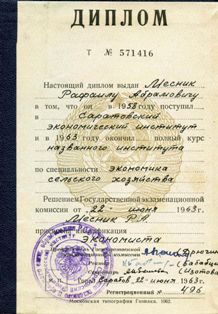 ДИПЛОМ
Т № 571416
Настоящий диплом выдан Меснику
Рафаилу Абрамовичу
в том, что он в 1958 году поступил
в Саратовский
экономический институт
и в 1963 году окончил полный курс
названного института
по специальности экономика
сельского хозяйства
Решением Государственной экзаменационной
комиссии от 22 июня 1963 г.
Месник Р.А.
присвоена квалификация
экономиста
Город Саратов 22 июня 1963 г.
Регистрационный № 496
Московская типография Гознака. 1962.